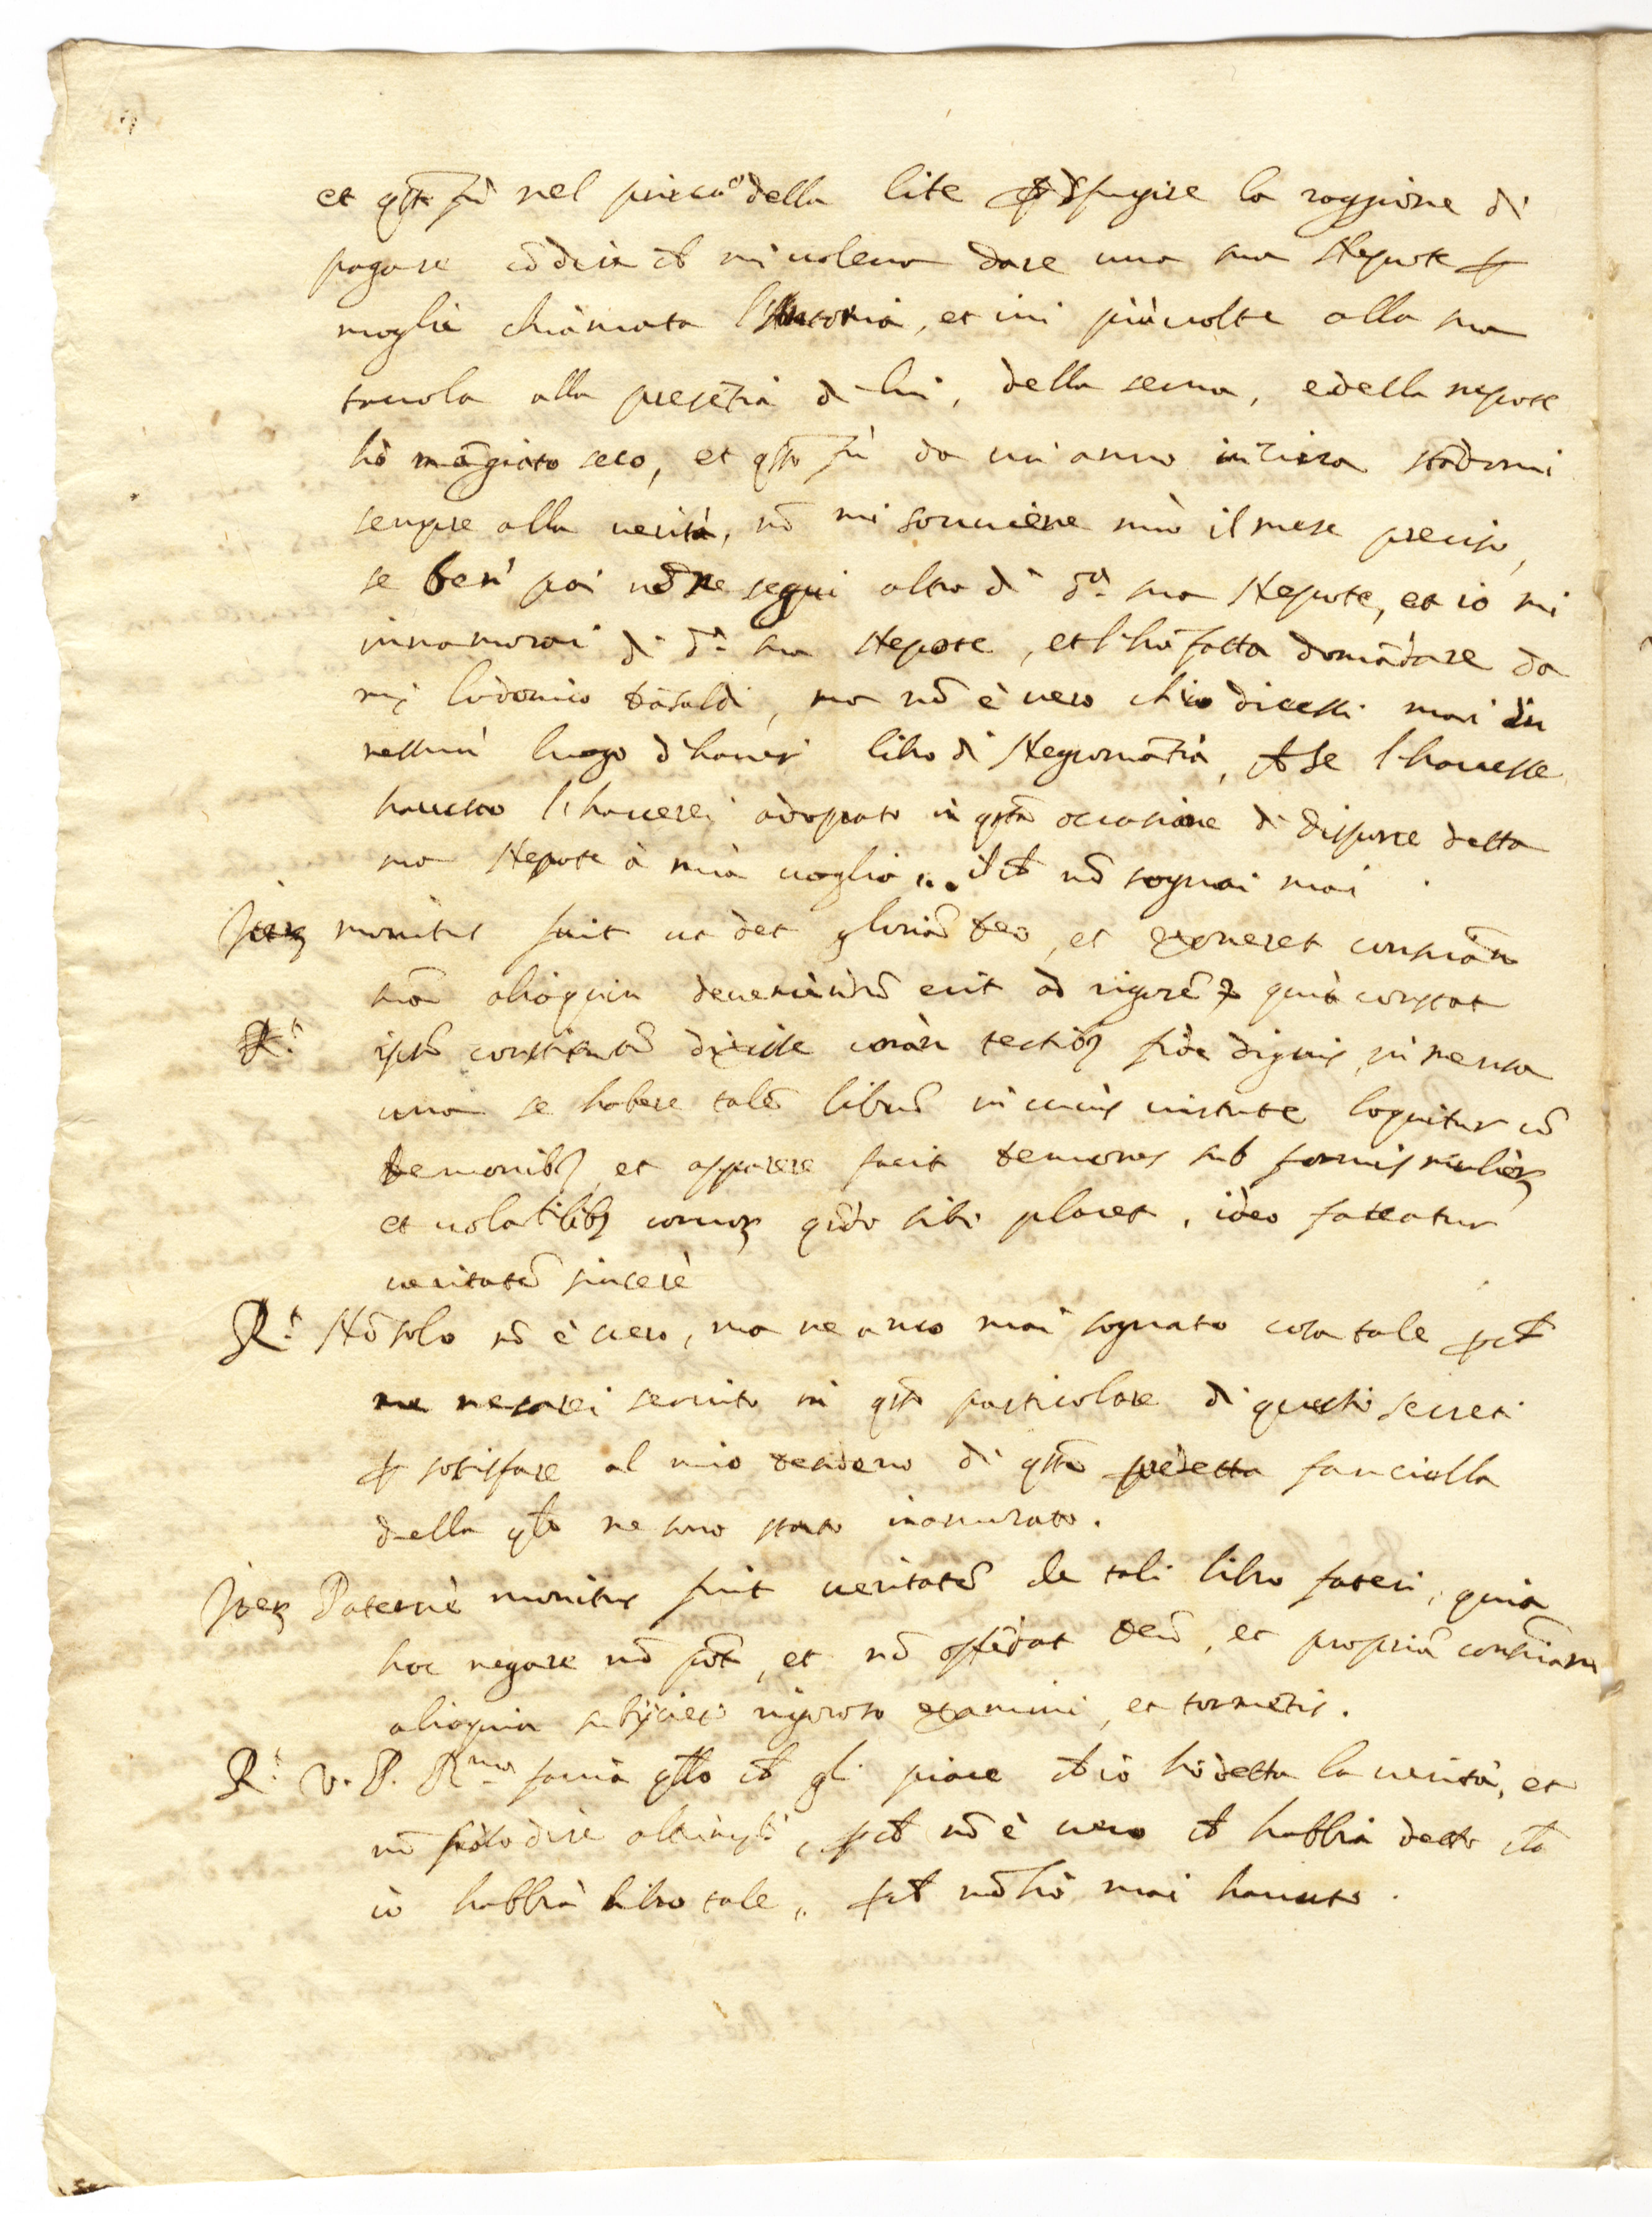 et q̃sto fù nel prin.º della lite ꝑ disfugire la raggione di
pagare cõ dire ch̃ mi voleva dare una sua Nepote ꝑ
moglie chiamata Antonia, et ivi più volte alla sua
tavola alla presẽtia di lui, della serva, e della nepote
hò mãgiato seco, et q̃sto fù da un anno in circa stãdomi
sempre alla verità, nõ mi souviene mò il mese preciso,
se ben poi nõ ne seguì altro di d.ª sua Nepote, et io mi
innamorai di d.ª sua Nepote, et l'hò fatta domãdare da
ms Lodovico, ma nõ è vero ch'io dicessi mai in
nessun luogo d'haver libro di Negromãtia, ch̃ se l'havesse
havuto l'haverei adoprato in q̃sta occasione di disporre detta
sua Nepote à mia voglia, il ch̃ nõ sognai mai.
monitus fuit ut det gloriã Deo, et exoneret consciãm
suã alioquin deveniẽdũ erit ad rigorẽ quia constat
R.ᵗ ipsũ constitutũ dixisse coràm testibꝫ fide dignis, in mensa
una se habere talẽ librũ in cuius virtute loquitur cũ
demonibꝫ, et apparere facit demones sub formis mulierꝫ
et volatilibꝫ corvorꝫ qñdo sibi placet, ideo fateatur
veritatẽ sincerè
R.ᵗ Nõ solo nõ è vero, ma ne anco mai sognato cosa tale ꝑch̃
me ne sarei servito in q̃sto particolare di questi secreti
ꝑ sotisfare al mio desiderio di q̃sta predetta fanciulla
della q̃le ne sono stato inamorato.
Iterꝫ Paternè monitus fuit veritatẽ de tali libro fateri, quia
hoc negare nõ põt, et nõ offẽdat Deũ, et propriã consciãm
alioquin subijcietur rigoroso examini, et tormẽtis.
R.ᵗ V. P. R.ᵐᵃ faccia q̃llo ch̃ gli piace ch̃ io hò detta la verità, et
nõ posso dire altrimẽti, ꝑch̃ nõ è vero ch̃ habbia detto ch̃
io habbia libro tale, ꝑch̃ nõ l'hò mai havuto.